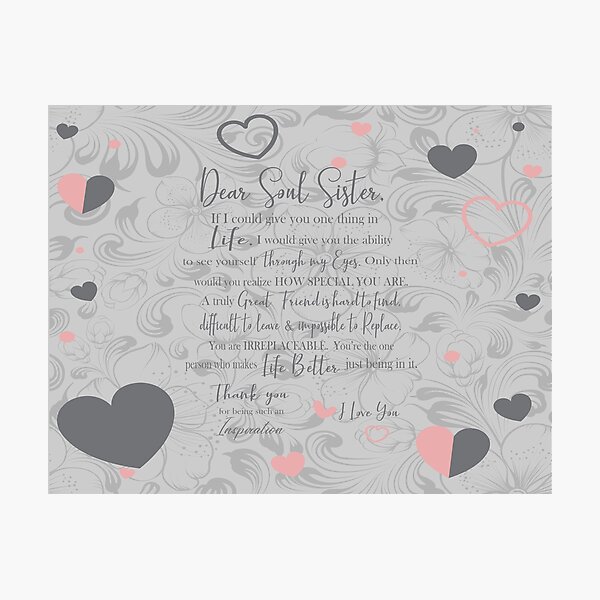 Dear Soul Sister,
If I could give you one thing in
Life, I would give you the ability
to see yourself through my Eyes. Only then
would you realize HOW SPECIAL YOU ARE.
A truly Great Friend is hard to find,
difficult to leave & impossible to Replace.
You are IRREPLACEABLE. You're the one
person who makes Life Better just being in it.
Thank you
for being such an
Inspiration
I Love You